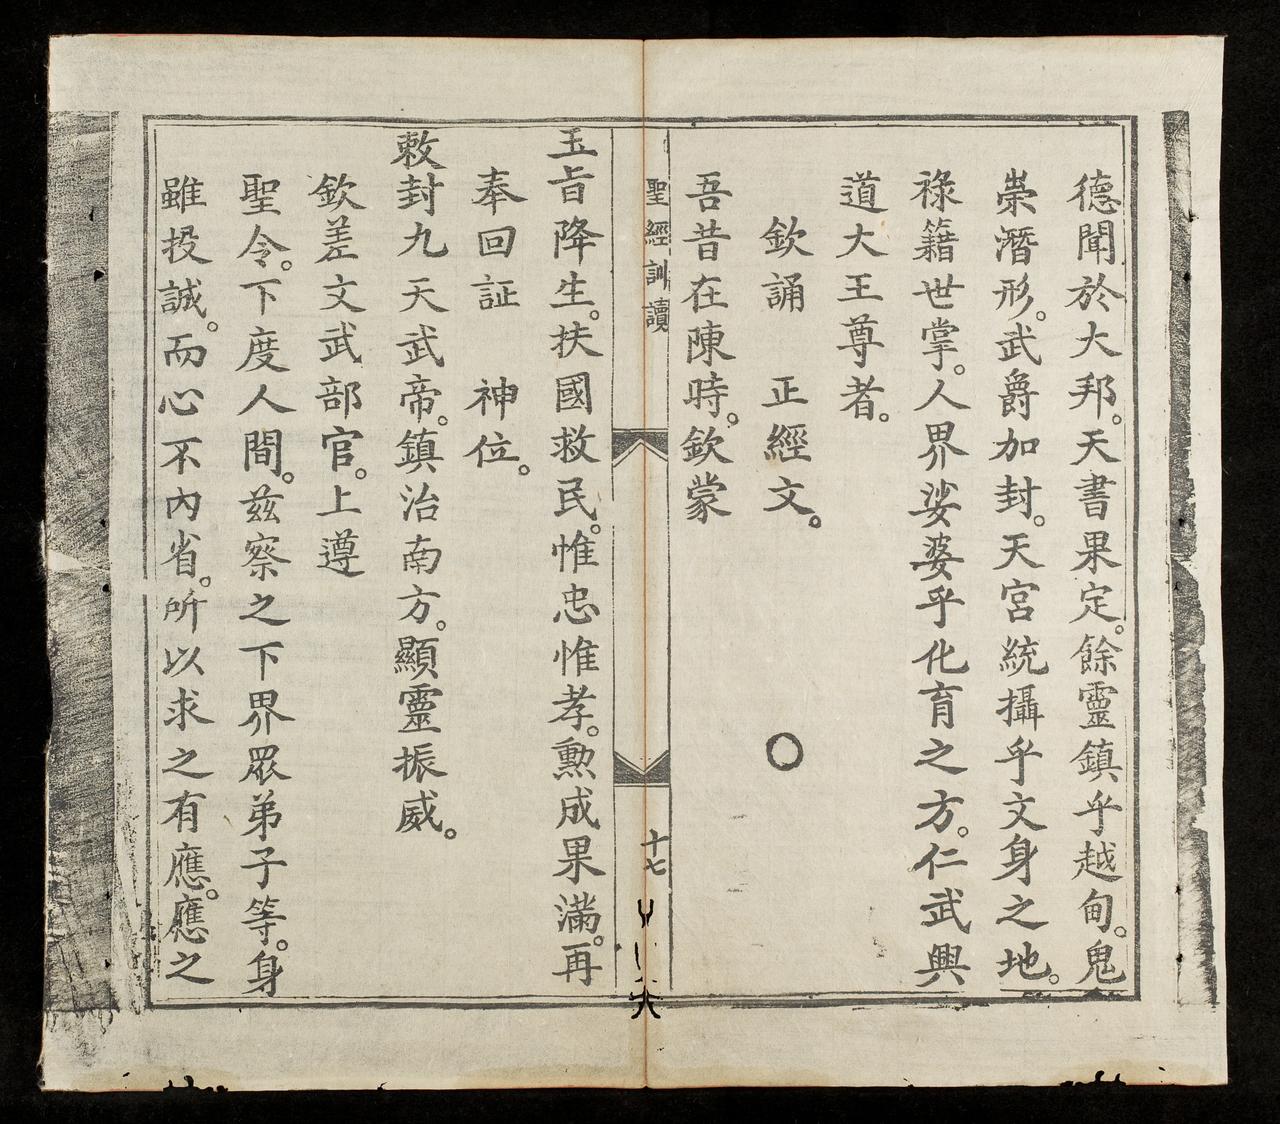 德聞於大邦。天書果定。餘靈鎮乎越甸。鬼
崇潛形。武爵加封。天宮統攝乎文身之地。
祿籍世掌。人界娑婆乎化育之方。仁武興
道大王尊者。
欽誦 正經文。 〇
吾昔在陳時。欽蒙
聖經訓讀 十七
玉旨降生。扶國救民。惟忠惟孝。勲成果滿。再
奉回証 神位。
敕封九天武帝。鎮治南方。顯靈振威。
欽差文武部官。上遵
聖令。下度人間。茲察之下界眾弟子等。身
雖投誠。而心不內省。所以求之有應。應之